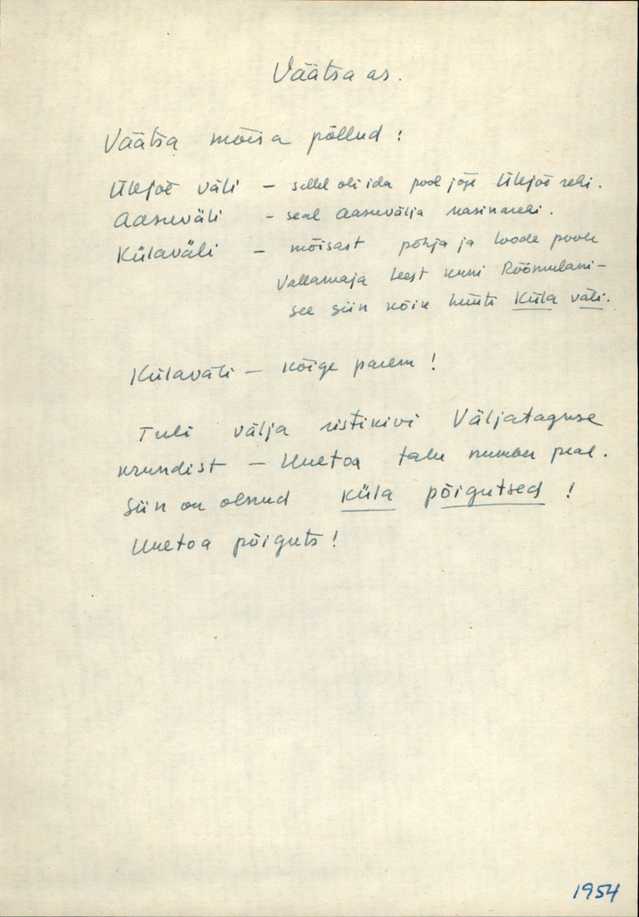 Väätsa as.
Väätsa mõisa põllud:
Ülejõe väli – sellel oli ida pool jõge Ülejõe rehi.
Aasuväli – seal Aasuvälja masinarehi.
Külaväli – mõisast põhja ja loode poole
Vallamaja teest kuni Röömulani –
see siin kõik hüüti Küla väli.
Külaväli – kõige parem!
Tuli välja ristikivi Väljataguse
krundist – Uuetoa talu numbri peal.
Siin on olnud küla põigutsed!
Uuetoa põiguts!
1954